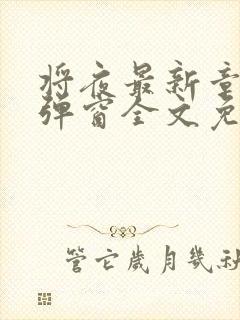 将夜最新章
弹窗全文免
管它岁月几社